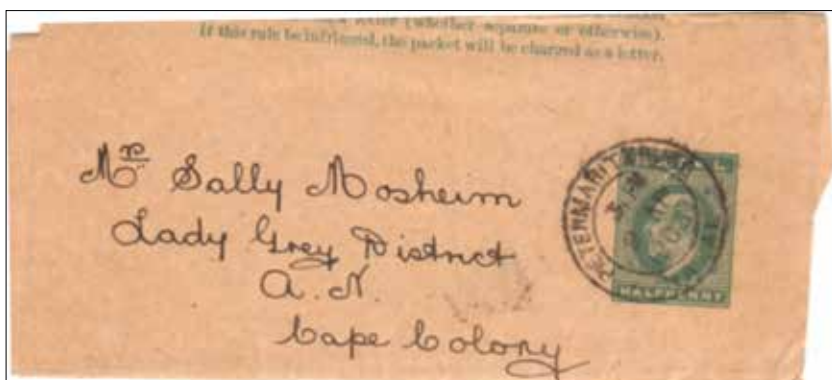 letter (whether separate or otherwise).
If this rule be infringed, the packet will be charged as a letter.
Mr Sally Mosheim
Lady Grey District
A. N.
Cape Colony
PIETERMARITZBURG
HALFPENNY